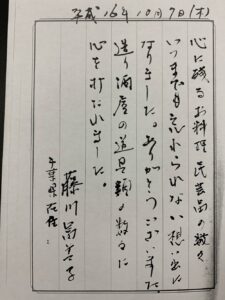 平成16年10月7日(木)
心に残るお料理 民芸品の数々
いつまでも忘れられない想い出に
なりました。ありがとうございました。
造り酒屋の道具類の数々に
心を打たれました。
千葉県在住
藤川